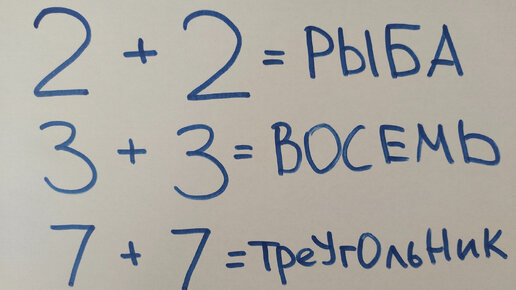 2 + 2 = РЫБА
3 + 3 = ВОСЕМЬ
7 + 7 = ТРеУгОльНИК